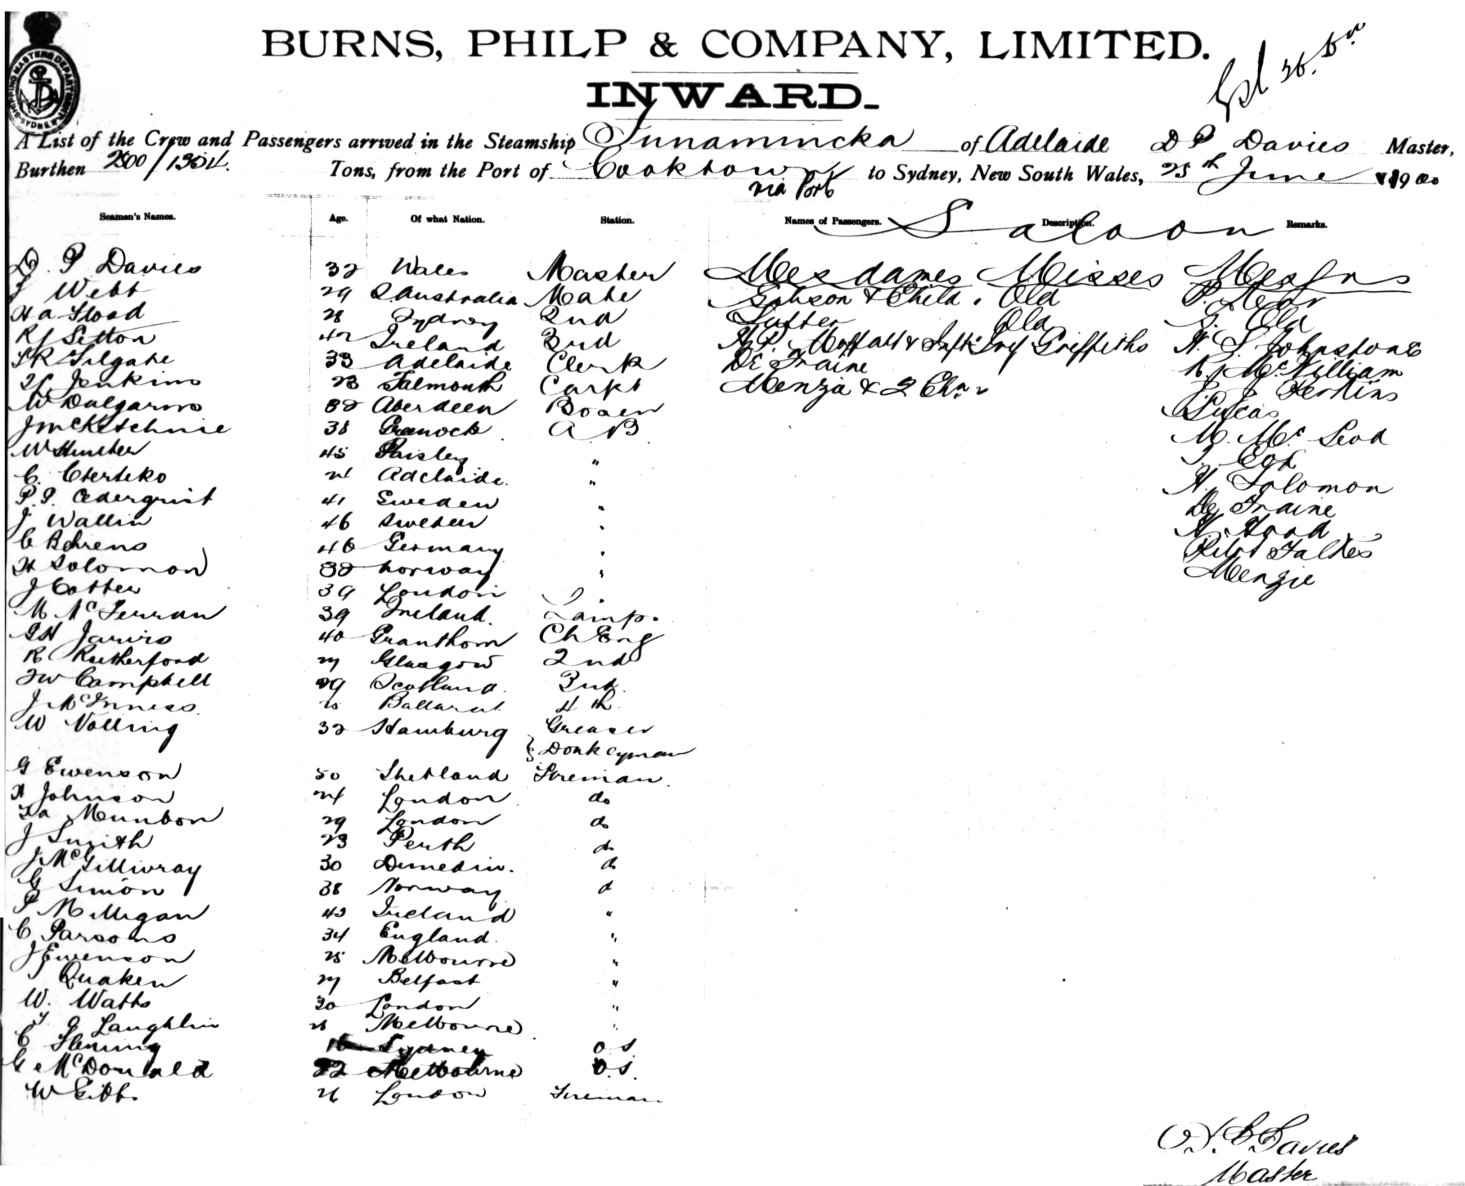 BURNS, PHILP & COMPANY, LIMITED.
INWARD.
A List of the Crew and Passengers arrived in the Steamship Innamincka of Adelaide D P Davies Master,
Burthen 2500/1504 Tons, from the Port of Cooktown via Ports to Sydney, New South Wales, 25th June 1900
Seamen's Names. Age. Of what Nation. Station. Names of Passengers. Description. Remarks.
Saloon
D. P Davies 32 Wales Master Mesdames Misses Messrs
J Webb 29 S. Australia Mate Gibson & Child. Old
H A Hood 28 Sydney 2nd Old J. Old
R J Sitton 42 Ireland 3rd Griffiths H. S. Johnstone
S R Filgate 33 Adelaide Clerk De Fraine McWilliam
Jenkins 23 Falmouth Carpt Menza & 2 Chn J. Perkins
W Dalgarno 32 Aberdeen Bosen Lucas
J McKetchnie 38 Greenock A B M. McLeod
W Hunter 45 Paisley " Cox
C. 21 Adelaide. " H. Solomon
P. P. Cederquist 41 Sweden " De Fraine
J Wallin 46 Sweden " H. Hood
C Behrens 46 Germany " Pilot
H Solomon 32 Norway " Menzie
J Cotter 39 London "
M. McFerran 39 Ireland. Lamp.
G H Jarvis 40 Granthom Ch Eng
R Rutherford 27 Glasgow 2nd
J W Campbell 29 Scotland. 3rd.
J. McInness. Ballarat 4th
W Nolling 32 Hamburg Greaser
& Donkeyman
G Ewenson 50 Shetland Fireman.
A Johnson 24 London do
Munbon 29 London do
J Smith 23 Perth do
J. McGillivray 30 Dunedin. do
G Simon 38 Norway do
P Milligan 43 Ireland "
C Parsons 34 England. "
J Ewenson 25 Melbourne "
J Quaken 27 Belfast "
W. Watts 30 London "
J G Laughlin Melbourne "
C Fleming 18 Sydney O S
G McDonald 22 Melbourne O.S.
W Gibb. 26 London Fireman
Davies
Master